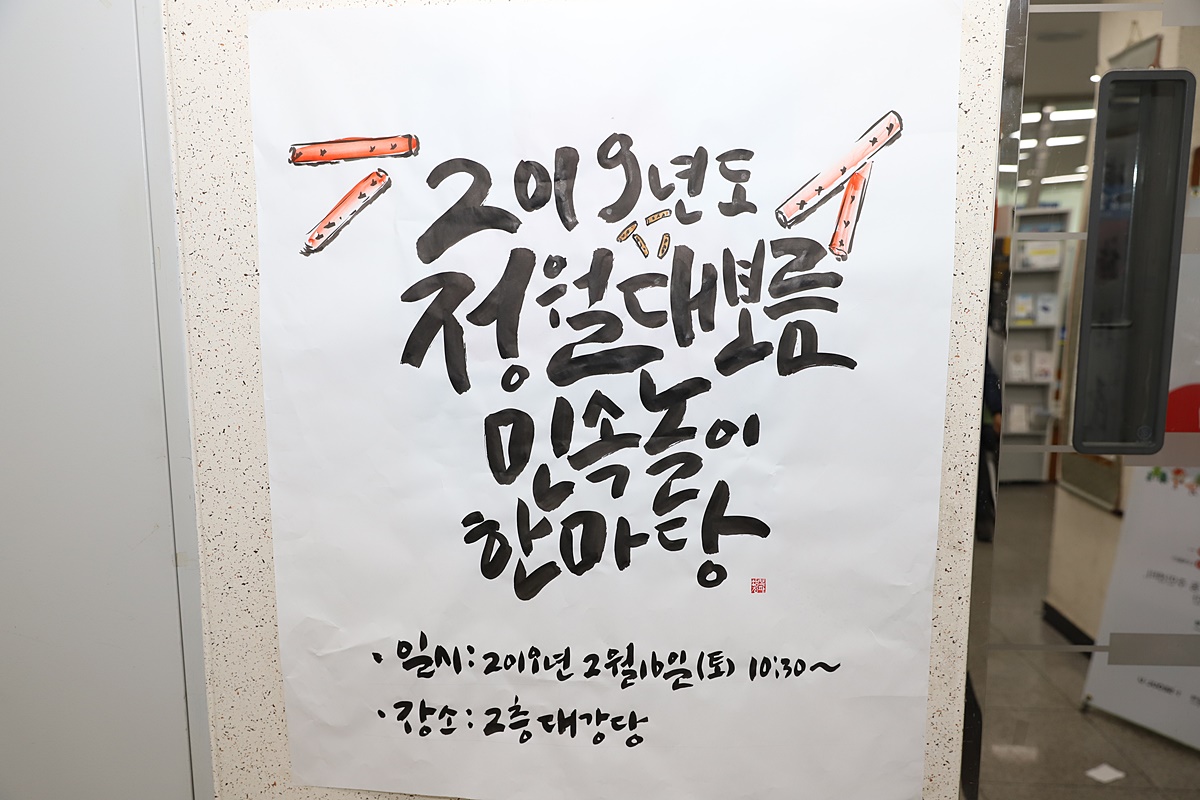 2019년도
정월대보름
민속놀이
한마당
· 일시: 2019년 2월 16일(토) 10:30~
· 장소: 2층 대강당